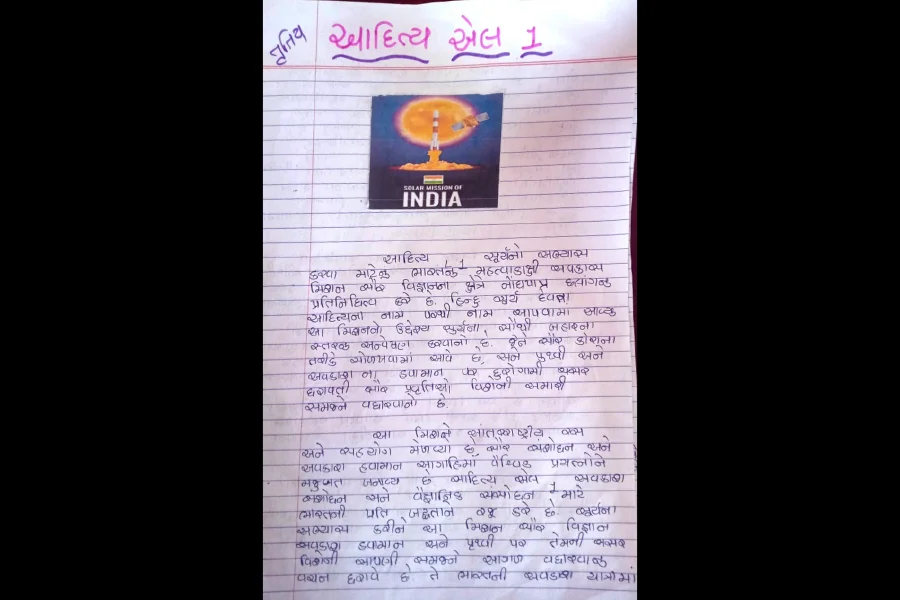 તૃતિય
આદિત્ય એલ 1
SOLAR MISSION OF
INDIA
આદિત્ય L 1 સૂર્યનો અભ્યાસ
કરવા માટેનું ભારતનું મહત્વાકાંક્ષી અવકાશ
મિશન સૌર વિજ્ઞાનના ક્ષેત્રે નોંધપાત્ર છલાંગનું
પ્રતિનિધિત્વ કરે છે. હિન્દુ સૂર્ય દેવતા
આદિત્યના નામ પરથી નામ આપવામાં આવ્યું
આ મિશનનો ઉદ્દેશ્ય સૂર્યના સૌથી બહારના
સ્તરનું અન્વેષણ કરવાનો છે. જેને સૌર કોરોના
તરીકે ઓળખવામાં આવે છે, અને પૃથ્વી અને
અવકાશના હવામાન પર દુરોગામી અસર
ધરાવતી સૌર પ્રવૃત્તિઓ વિશેની અમારી
સમજને વધારવાનો છે.
આ મિશને આંતરરાષ્ટ્રીય રસ
અને સહયોગ મેળવ્યો છે સૌર સંશોધન અને
અવકાશ હવામાન આગાહિમાં વૈશ્વિક પ્રયત્નોને
મજબુત બનાવ્ય છે આદિત્ય એલ 1 અવકાશ
સંશોધન અને વૈજ્ઞાનિક સંશોધન માટે
ભારતની પ્રતિબદ્ધતાને રજૂ કરે છે. સૂર્યના
અભ્યાસ કરીને આ મિશન સૌર વિજ્ઞાન
અવકાશ હવામાન અને પૃથ્વી પર તેમની અસર
વિશેની આપણી સમજને આગળ વધારવાનું
વચન ધરાવે છે. તે ભારતની અવકાશ યાત્રામાં